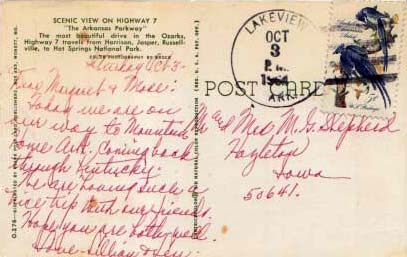 SCENIC VIEW ON HIGHWAY 7
"The Arkansas Parkway"
The most beautiful drive in the Ozarks,
Highway 7 travels from Harrison, Jasper, Russell-
ville, to Hot Springs National Park.
Oct 3-
Dear Margaret & Mose:
Today we are on
our way to Mountain
Home Ark. Coming back
through Kentucky.
We are having such a
nice trip with our friends.
Hope you are both well.
Love- Lillian &
LAKEVIEW
OCT
3
P.M.
1964
ARK.
POST CARD
Mr & Mrs M. G. Shepherd
Hazleton
Iowa
50641.